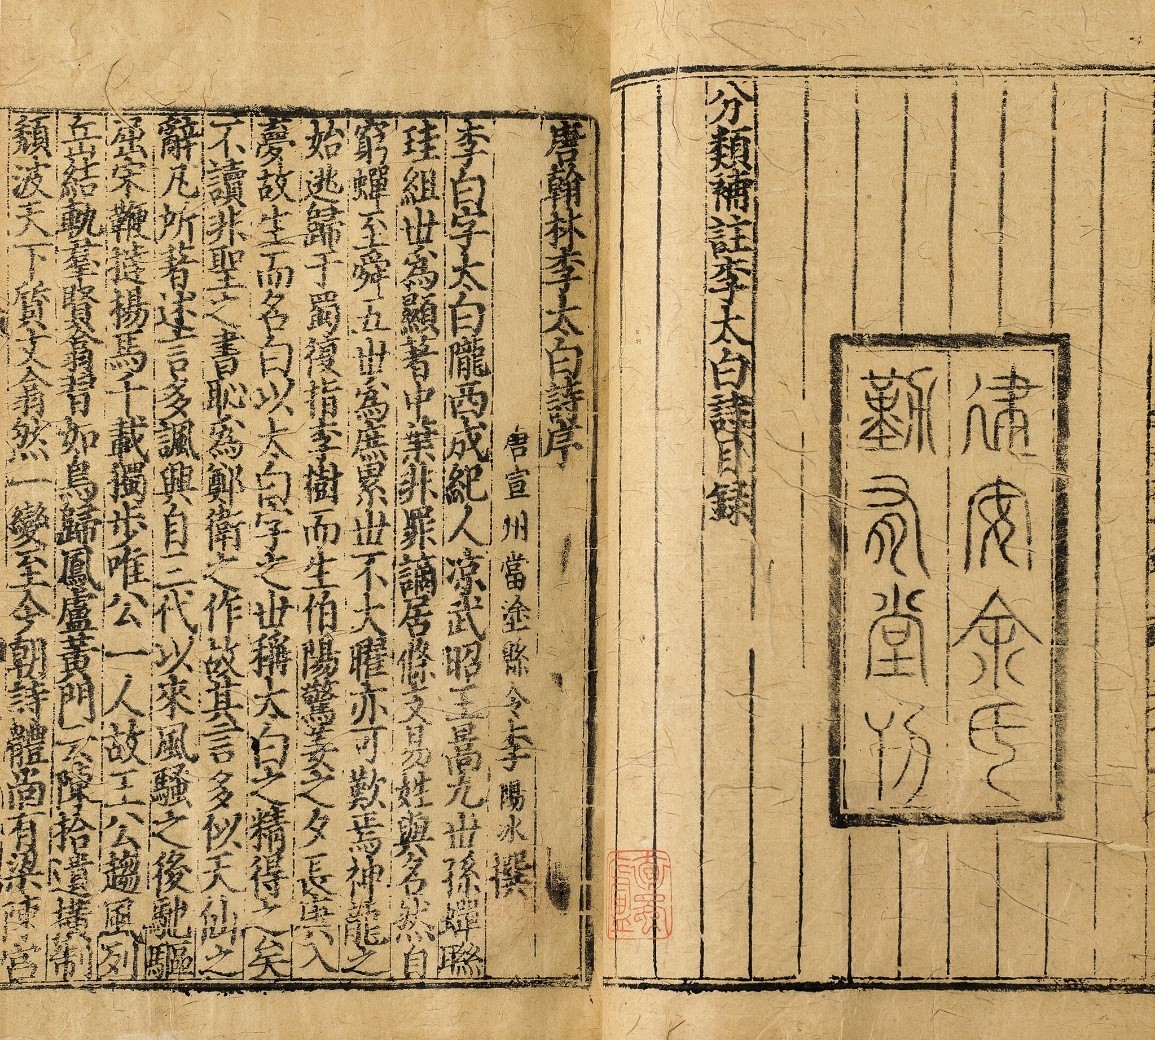 建安余氏
勤有堂刊
分類補註李太白詩目錄
唐翰林李太白詩序
唐宣州當塗縣令李陽冰撰
李白字太白隴西成紀人凉武昭王暠九世孫蟬聯
珪組世為顯著中葉非罪謫居條支易姓與名然自
窮蟬至舜五世為庶累世不大曜亦可歎焉神龍之
始逃歸于蜀復指李樹而生伯陽驚姜之夕長庚入
夢故生而名白以太白字之世稱太白之精得之矣
不讀非聖之書恥為鄭衛之作故其言多似天仙之
辭凡所著述言多諷興自三代以來風騷之後馳驅
屈宋鞭撻楊馬千載獨步唯公一人故王公趨風列
岳結軌羣賢翕習如鳥歸鳳盧黃門云陳拾遺橫制
頹波天下質文翕然一變至今朝詩體尚有梁陳宮